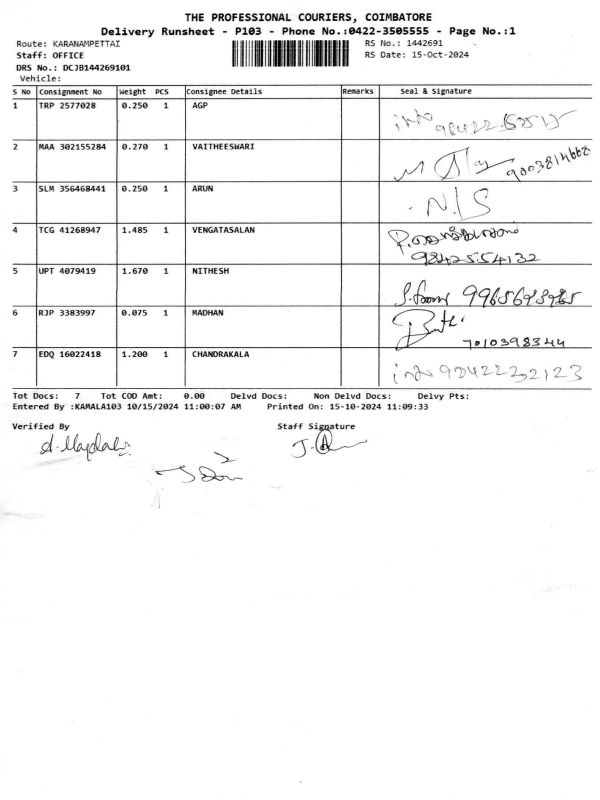 THE PROFESSIONAL COURIERS, COIMBATORE
Delivery Runsheet - P103 - Phone No.:0422-3505555 - Page No.:1
Route: KARANAMPETTAI RS No.: 1442691
Staff: OFFICE RS Date: 15-Oct-2024
DRS No.: DCJB144269101
Vehicle:
S No Consignment No Weight PCS Consignee Details Remarks Seal & Signature
1 TRP 2577028 0.250 1 AGP
2 MAA 302155284 0.270 1 VAITHEESWARI 9003814668
3 SLM 356468441 0.250 1 ARUN N.LS
4 TCG 41268947 1.485 1 VENGATASALAN
9842554132
5 UPT 4079419 1.670 1 NITHESH
6 RJP 3383997 0.075 1 MADHAN 7010398344
7 EDQ 16022418 1.200 1 CHANDRAKALA 9042232123
Tot Docs: 7 Tot COD Amt: 0.00 Delvd Docs: Non Delvd Docs: Delvy Pts:
Entered By :KAMALA103 10/15/2024 11:00:07 AM Printed On: 15-10-2024 11:09:33
Verified By Staff Signature